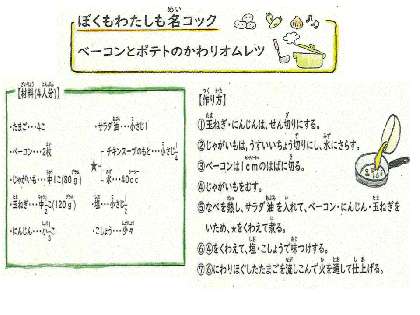 ぼくもわたしも名コック
ベーコンとポテトのかわりオムレツ
【材料(4人分)】
・たまご…4こ
・ベーコン…2枚
・じゃがいも…中1こ(80g)
・玉ねぎ…中1/2こ(120g)
・にんじん…
・サラダ油…小さじ1
★
・チキンスープのもと…小さじ
・水…40cc
・塩…小さじ
・こしょう…少々
【作り方】
①玉ねぎ・にんじんは、せん切りにする。
②じゃがいもは、うすいいちょう切りにし、水にさらす。
③ベーコンは1cmのはばに切る。
④じゃがいもをむす。
⑤なべを熱し、サラダ油を入れて、ベーコン・にんじん・玉ねぎを
いため、★をくわえて煮る。
⑥④をくわえて、塩・こしょうで味つけする。
⑦⑥にわりほぐしたたまごを流しこんで火を通して仕上げる。